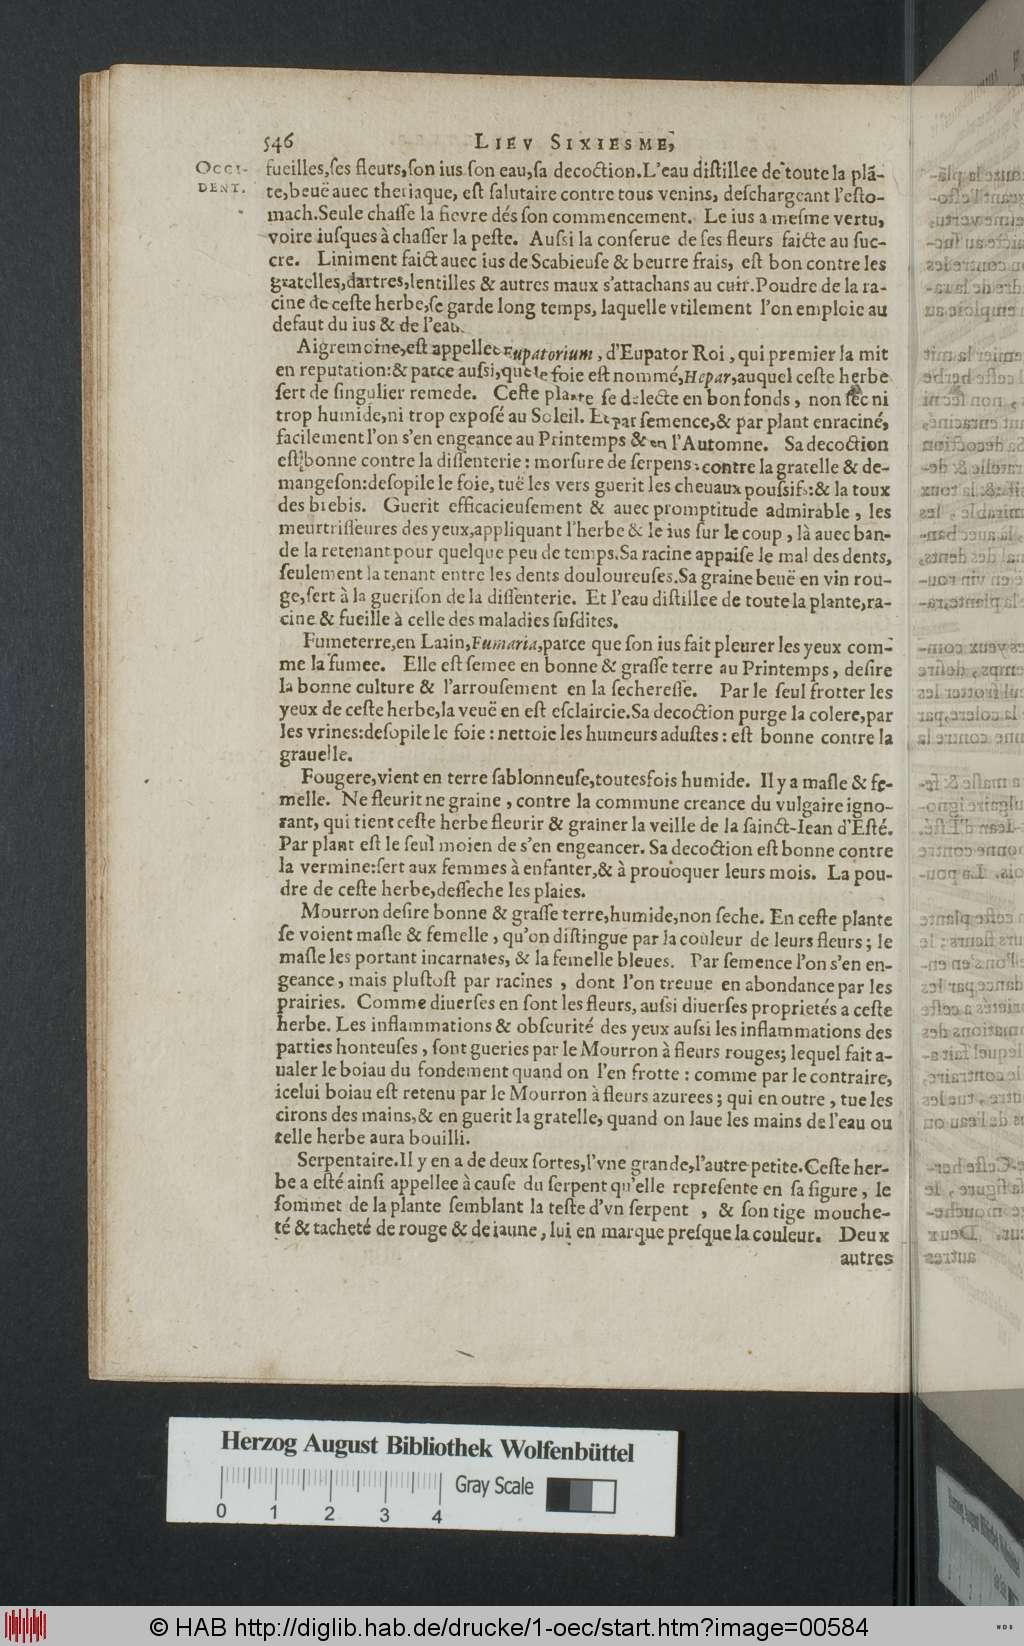 546 LIEV SIXIESME,
OCCI-
DENT.
fueilles,ſes fleurs,ſon ius ſon eau,ſa decoction.L'eau diſtillee de toute la plã-
te,beuë auec theriaque, eſt ſalutaire contre tous venins, deſchargeant l'eſto-
mach.Seule chaſſe la fievre dés ſon commencement. Le ius a meſme vertu,
voire iuſques à chaſſer la peſte. Auſsi la conſerue de ſes fleurs faicte au ſuc-
cre. Liniment faict auec ius de Scabieuſe & beurre frais, eſt bon contre les
gratelles,dartres,lentilles & autres maux s'attachans au cuir.Poudre de la ra-
cine de ceſte herbe,ſe garde long temps, laquelle vtilement l'on emploie au
defaut du ius & de l'eau.
Aigremoine,eſt appellee Eupatorium, d'Eupator Roi, qui premier la mit
en reputation:& parce auſsi,que le foie eſt nommé,Hepar,auquel ceſte herbe
ſert de ſingulier remede. Ceſte plante ſe delecte en bon fonds, non ſec ni
trop humide,ni trop expoſé au Soleil. Et par ſemence,& par plant enraciné,
facilement l'on s'en engeance au Printemps & en l'Automne. Sa decoction
eſt bonne contre la diſſenterie: morſure de ſerpens: contre la gratelle & de-
mangeſon:deſopile le foie, tuë les vers guerit les cheuaux pouſsifs:& la toux
des brebis. Guerit efficacieuſement & auec promptitude admirable, les
meurtriſſeures des yeux,appliquant l'herbe & le ius ſur le coup, là auec ban-
de la retenant pour quelque peu de temps.Sa racine appaiſe le mal des dents,
ſeulement la tenant entre les dents douloureuſes.Sa graine beuë en vin rou-
ge,ſert à la gueriſon de la diſſenterie. Et l'eau diſtillee de toute la plante,ra-
cine & fueille à celle des maladies ſuſdites.
Fumeterre,en Latin,Fumaria,parce que ſon ius fait pleurer les yeux com-
me la fumee. Elle eſt ſemee en bonne & graſſe terre au Printemps, deſire
la bonne culture & l'arrouſement en la ſechereſſe. Par le ſeul frotter les
yeux de ceſte herbe,la veuë en eſt eſclaircie.Sa decoction purge la colere,par
les vrines:deſopile le foie: nettoie les humeurs aduſtes: eſt bonne contre la
grauelle.
Fougere,vient en terre ſablonneuſe,toutesfois humide. Il y a maſle & fe-
melle. Ne fleurit ne graine, contre la commune creance du vulgaire igno-
rant, qui tient ceſte herbe fleurir & grainer la veille de la ſainct-Iean d'Eſté.
Par plant eſt le ſeul moien de s'en engeancer. Sa decoction eſt bonne contre
la vermine:ſert aux femmes à enfanter,& à prouoquer leurs mois. La pou-
dre de ceſte herbe,deſſeche les plaies.
Mourron deſire bonne & graſſe terre,humide,non ſeche. En ceſte plante
ſe voient maſle & femelle, qu'on diſtingue par la couleur de leurs fleurs; le
maſle les portant incarnates, & la femelle bleues. Par ſemence l'on s'en en-
geance, mais pluſtoſt par racines, dont l'on treuue en abondance par les
prairies. Comme diuerſes en ſont les fleurs, auſsi diuerſes proprietés a ceſte
herbe. Les inflammations & obſcurité des yeux auſsi les inflammations des
parties honteuſes, ſont gueries par le Mourron à fleurs rouges; lequel fait a-
ualer le boiau du fondement quand on l'en frotte: comme par le contraire,
icelui boiau eſt retenu par le Mourron à fleurs azurees; qui en outre, tue les
cirons des mains,& en guerit la gratelle, quand on laue les mains de l'eau ou
telle herbe aura bouilli.
Serpentaire.Il y en a de deux ſortes,l'vne grande,l'autre petite.Ceſte her-
be a eſté ainſi appellee à cauſe du ſerpent qu'elle repreſente en ſa figure, le
ſommet de la plante ſemblant la teſte d'vn ſerpent, & ſon tige mouche-
té & tacheté de rouge & de iaune, lui en marque preſque la couleur. Deux
autres
Herzog August Bibliothek Wolfenbüttel
0 1 2 3 4 Gray Scale
© HAB http://diglib.hab.de/drucke/1-oec/start.htm?image=00584